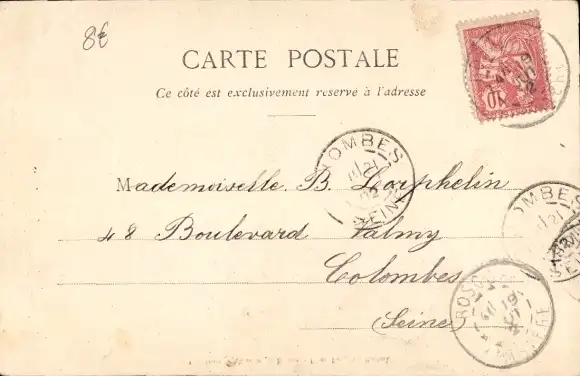 8€
CARTE POSTALE
Ce côté est exclusivement reservé à l'adresse
Mademoiselle. B. Lorphelin
48 Boulevard Valmy
Colombes
(Seine)
OMBES
21
02
SEINE
OMBES
21
10
ROSC